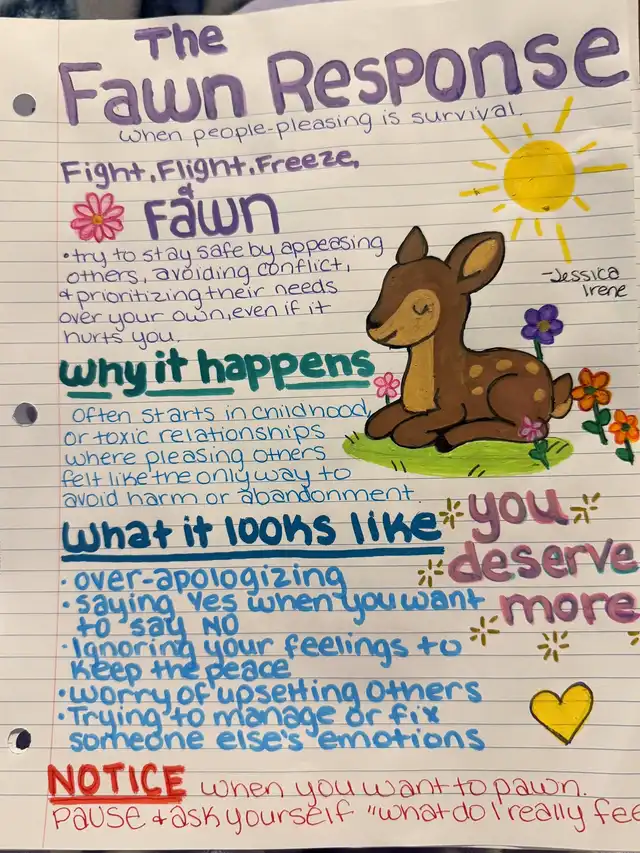 The
Fawn Response
when people-pleasing is survival.
Fight, Flight, Freeze,
&
Fawn
• try to stay safe by appeasing
others, avoiding conflict,
& prioritizing their needs
over your own, even if it
hurts you.
-Jessica
Irene
why it happens
often starts in childhood,
or toxic relationships
where pleasing others
felt like the only way to
avoid harm or abandonment.
what it looks like
• over-apologizing
• saying yes when you want
to say NO
• Ignoring your feelings to
keep the peace
• worry of upsetting others
• Trying to manage or fix
someone else's emotions
you
deserve
more
NOTICE when you want to pawn.
Pause & ask yourself "what do I really fee